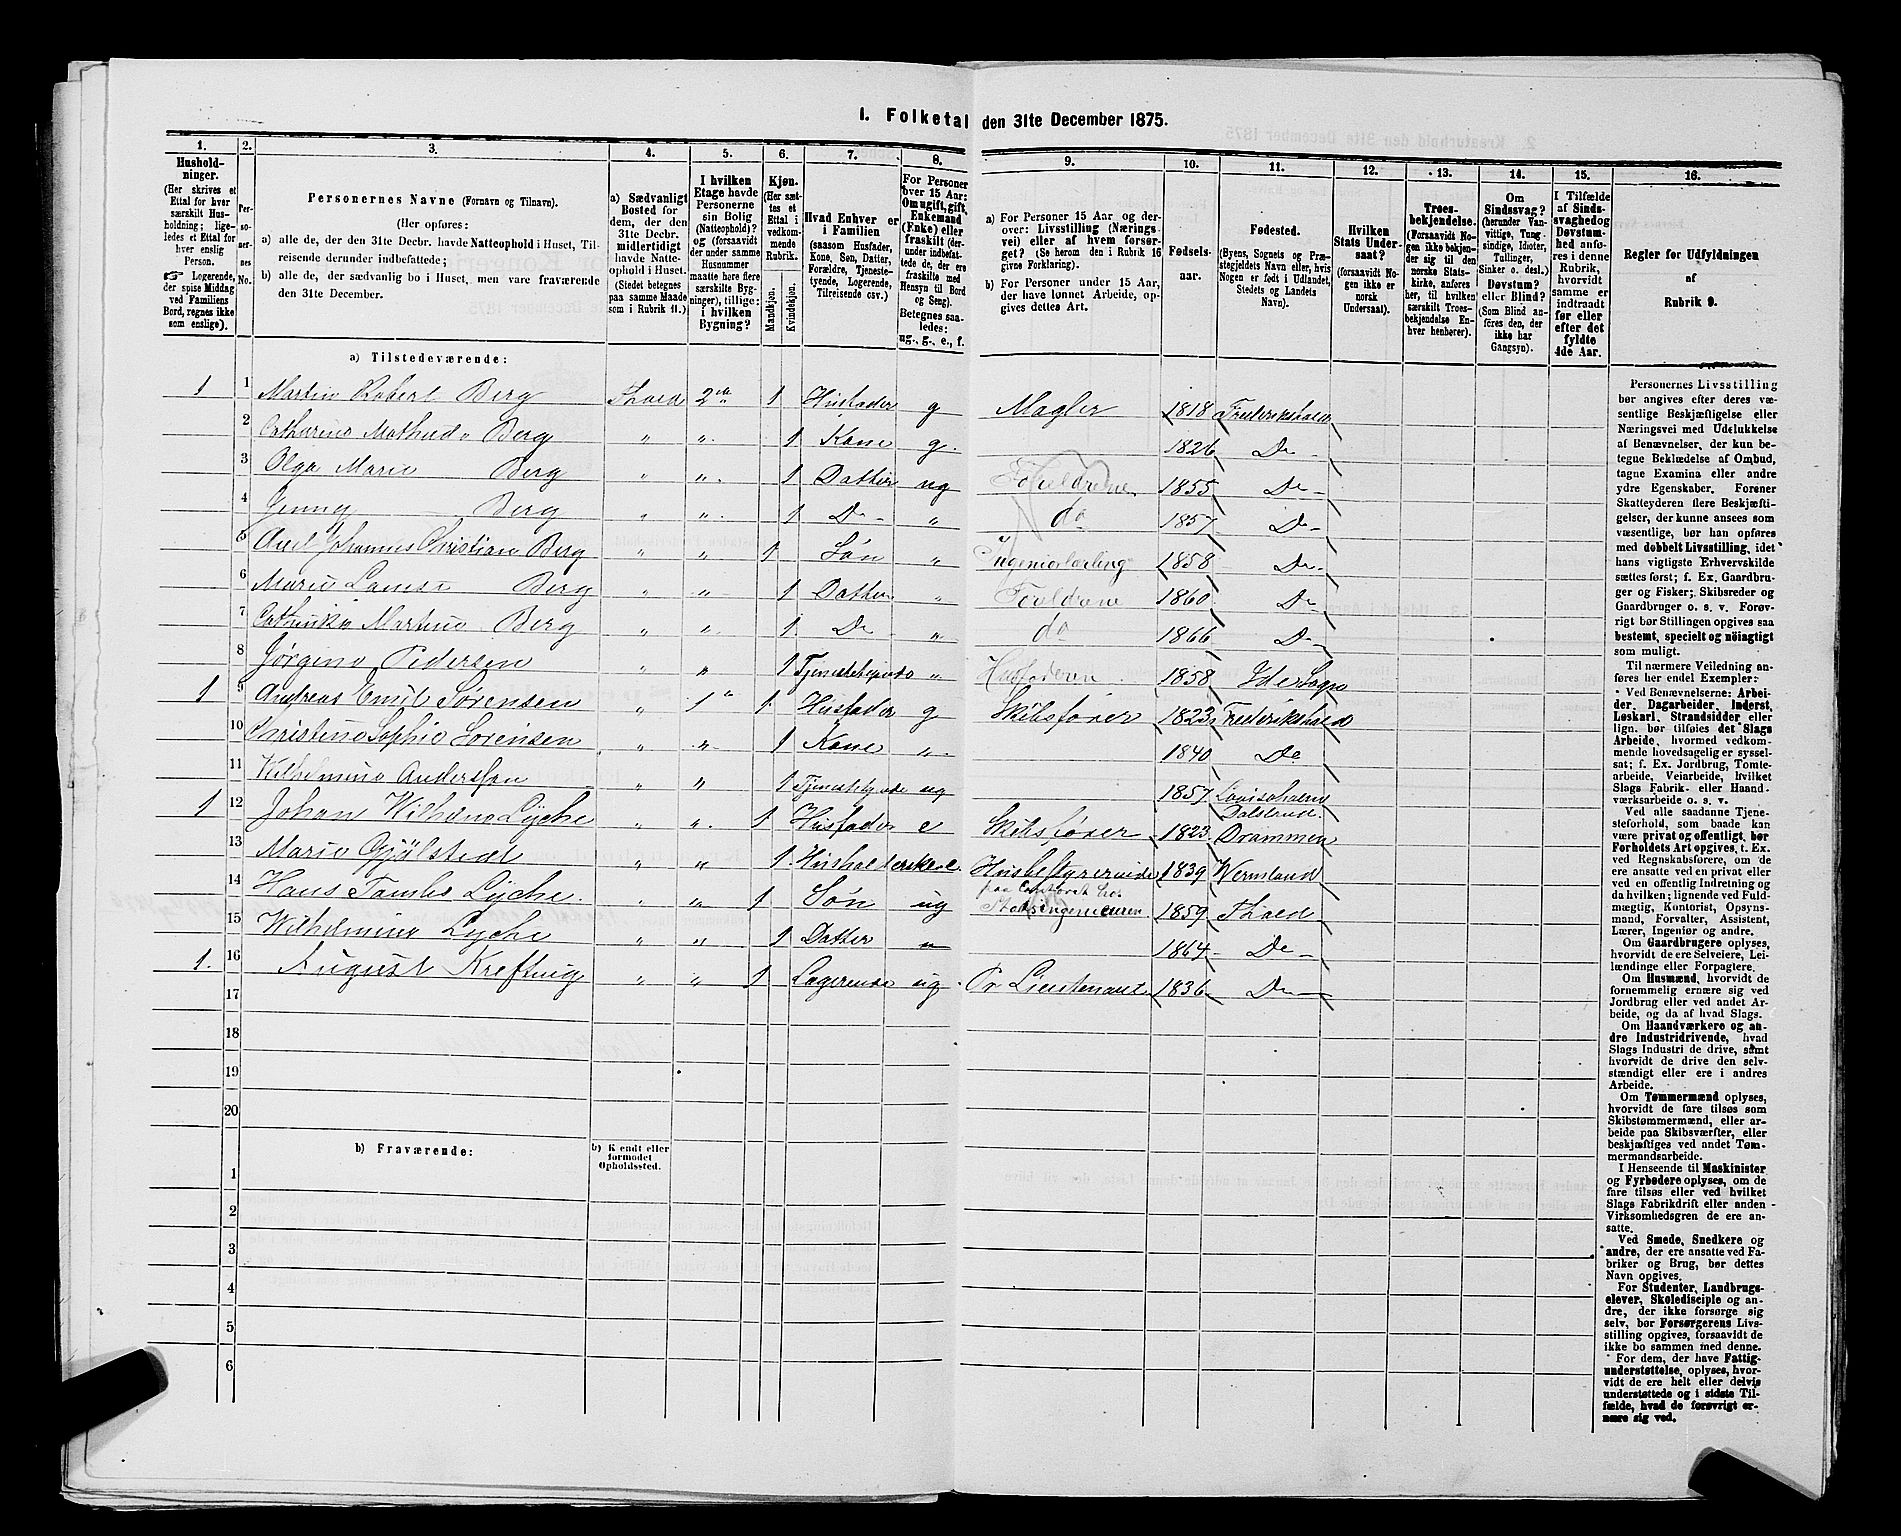 1. Folketal den 31te December 1875.
1. 2. 3. 4. 5. 6. 7. 8. 9. 10. 11. 12. 13. 14. 15. 16.
Husholdninger.
(Her skrives et
Ettal for hver
særskilt Husholdning;
ligeledes et Ettal for
hver enslig
Person.
☞ Logerende,
der spise Middag
ved Familiens
Bord, regnes ikke
som enslige).
Personernes No.
Personernes Navne (Fornavn og Tilnavn).
(Her opføres:
a) alle de, der den 31te Decbr. havde Natteophold i Huset, Tilreisende derunder indbefattede;
b) alle de, der sædvanlig bo i Huset, men vare fraværende
den 31te December.
a) Sædvanligt
Bosted for
dem, der den
31te Decbr.
midlertidigt
havde Natteophold i Huset.
(Stedet betegnes
paa samme Maade
som i Rubrik 11.)
I hvilken
Etage havde
Personerne
sin Bolig
(Natteophold)?
og (forsaavidt
der under samme
Husnummer
maatte høre flere
særskilte Bygninger), tillige:
i hvilken
Bygning?
Kjøn.
(Her sættes et
Ettal i
vedkommende
Rubrik.
Mandkjøn.
Kvindekjøn.
Hvad Enhver er
i Familien
(saasom Husfader,
Kone, Søn, Datter,
Forældre, Tjenestetyende, Logerende,
Tilreisende osv.)
For Personer
over 15 Aar:
Om ugift, gift,
Enkemand
(Enke) eller
fraskilt (derunder indbefattede de, der ere
fraskilte med
Hensyn til Bord
og Seng).
Betegnes saaledes:
ug., g., e., f.
a) For Personer 15 Aar og derover: Livsstilling (Næringsvei) eller af hvem forsørget? (Se herom den i Rubrik 16
givne Forklaring).
b) For Personer under 15 Aar,
der have lønnet Arbeide, opgives dettes Art.
Fødselsaar.
Fødested.
(Byens, Sognets og Præstegjeldets Navn eller, hvis
Nogen er født i Udlandet,
Stedets og Landets
Navn).
Hvilken
Stats Undersaat?
(forsaavidt Nogen ikke er
norsk
Undersaat).
Troesbekjendelse.
(Forsaavidt Nogen ikke bekjender sig til den
norske Statskirke, anføres
her, til hvilken
særskilt Troesbekjendelse Enhver henhører).
Om
Sindssvag?
(herunder Vanvittige, Tungsindige, Idioter,
Tullinger,
Sinker o. desl.)
Døvstum?
eller Blind?
(Som Blind anføres den, der
ikke har
Gangsyn).
I Tilfælde
af Sindssvaghed og
Døvstumhed anføres i denne
Rubrik,
hvorvidt
samme er
indtraadt
før eller
efter det
fyldte
4de Aar.
Regler for Udfyldningen
af
Rubrik 9.
a) Tilstedeværende:
1 1 Martin Robert Berg Fhald 2den 1 Husfader g Magler 1818 Frederikshald
2 Cathrina Mathed" Berg " " 1 Kone g. 1826 Do
3 Olga Marie Berg " " 1 Datter ug Forældrene 1855 Do
4 Jenny Berg " " 1 Do " do 1857 Do
5 Axel Johannes Christian Berg " " 1 Søn " Ingeniørlærling 1858 Do
6 Marie Berg " " 1 Datter " Forældrene 1860 Do
7 Martine Berg " " 1 Do " do 1866 Do
8 Jørgine Pedersen " " 1 Tjenestetyende " Husfaderen 1858 Ide Sogn
1 9 Andreas Emil Sørensen " 1 " 1 Husfader g Skibsfører 1823 Frederikshald
10 Christine Sophie Sørensen " " 1 Kone " 1840 Do
11 Wilhelmine Anderson " " 1 Tjenestetyende ug 1857 Dalsland.
1 12 Johan Wilhelm Lyche " " 1 Husfader e Skibsfører 1823 Drammen
13 Marie Gjulstedt " " 1 Husholderske e. Husbestyrerinde 1839 Wermland
14 Hans Tambs Lyche " " 1 Søn ug paa Contoret hos Stadsingenieuren 1859 Fhald
15 Wilhelmine Lyche " " 1 Datter " 1864 Do
1. 16 August Krefting " " 1 Logerende ug. Pr Lieutenant 1836 Do
17
18
19
20
b) Fraværende:
b) Kjendt eller
formodet
Opholdssted.
1
2
3
4
5
6
Personernes Livsstilling
bør angives efter deres væsentlige Beskjæftigelse eller
Næringsvei med Udelukkelse
af Benævnelser, der kun betegne Beklædelse af Ombud,
tagne Examina eller andre
ydre Egenskaber. Forener
Skatteyderen flere Beskjæftigelser, der kunne ansees som
væsentlige, bør han opføres
med dobbelt Livsstilling, idet
hans vigtigste Erhvervskilde
sættes først; f. Ex. Gaardbruger og Fisker; Skibsreder og
Gaardbruger o. s. v. Forøvrigt bør Stillingen opgives saa
bestemt, specielt og nöiagtigt
som muligt.
Til nærmere Veiledning anføres her endel Exempler:
Ved Benævnelserne: Arbeider, Dagarbeider, Inderst,
Løskarl, Strandsidder eller
lign. bør tilføies det Slags
Arbeide, hvormed vedkommende hovedsagelig er sysselsat; f. Ex. Jordbrug, Tomtearbeide, Veiarbeide, hvilket
Slags Fabrik- eller Haandværksarbeide o. s. v.
Ved alle saadanne Tjenesteforhold, som baade kan
være privat og offentligt, bør
Forholdets Art opgives, f. Ex.
ved Regnskabsførere, om de
ere ansatte ved en privat eller
ved en offentlig Indretning og
da hvilken; lignende ved Fuldmægtig, Kontorist, Opsynsmand, Forvalter, Assistent,
Lærer, Ingeniør og andre.
Om Gaardbrugere oplyses,
hvorvidt de ere Selveiere, Leilændinge eller Forpagtere.
Om Husmænd, hvorvidt de
fornemmelig ernære sig ved
Jordbrug eller ved andet Arbeide, og da af hvad Slags.
Om Haandværkere og andre Industridrivende, hvad
Slags Industri de drive, samt
hvorvidt de drive den selvstændigt eller ere i andres
Arbeide.
Om Tømmermænd oplyses,
hvorvidt de fare tilsøs som
Skibstømmermænd, eller arbeide paa Skibsværfter, eller
beskjæftiges ved andet Tømmermandsarbeide.
I Henseende til Maskinister
og Fyrbødere oplyses, om de
fare tilsøs eller ved hvilket
Slags Fabrikdrift eller anden
Virksomhedsgren de ere ansatte.
Ved Smede, Snedkere og
andre, der ere ansatte ved Fabriker og Brug, bør dettes
Navn opgives.
For Studenter, Landbrugselever, Skoledisciple og andre, der ikke forsørge sig
selv, bør Forsørgerens Livsstilling opgives, forsaavidt de
ikke bo sammen med denne.
For dem, der have Fattigunderstøttelse, oplyses, hvorvidt de ere helt eller delvis
understøttede og i sidste Tilfælde, hvad de forøvrigt ernære sig ved.